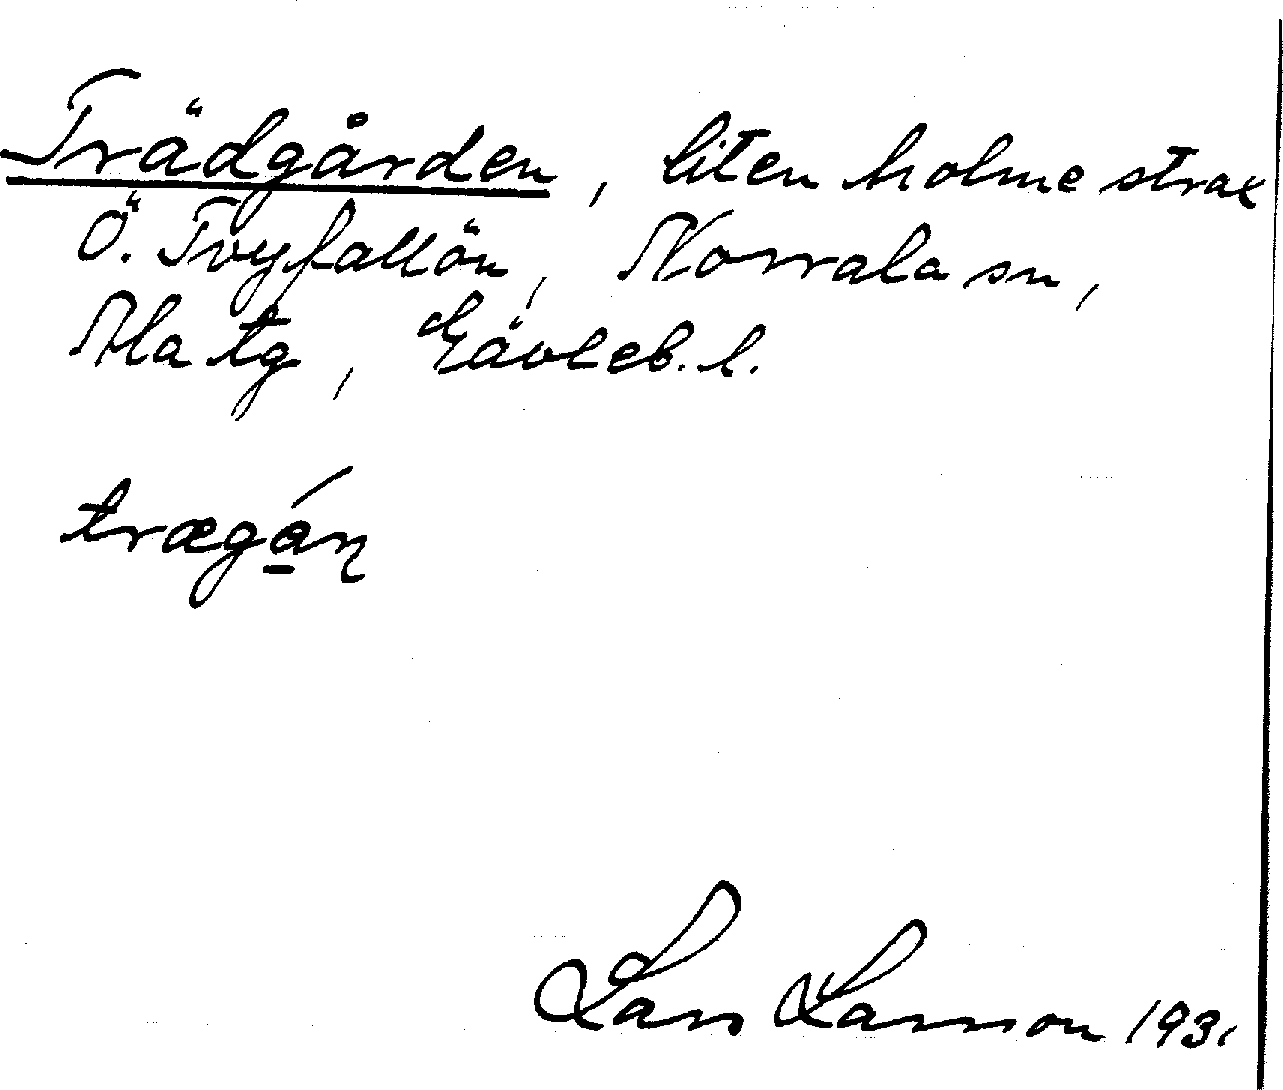 Trädgården, liten holme strax
Ö. Tvyfallön, Norrala sn,
Ala tg, Gävleb. l.
trægá̱ɳ
Lars Larsson 1931